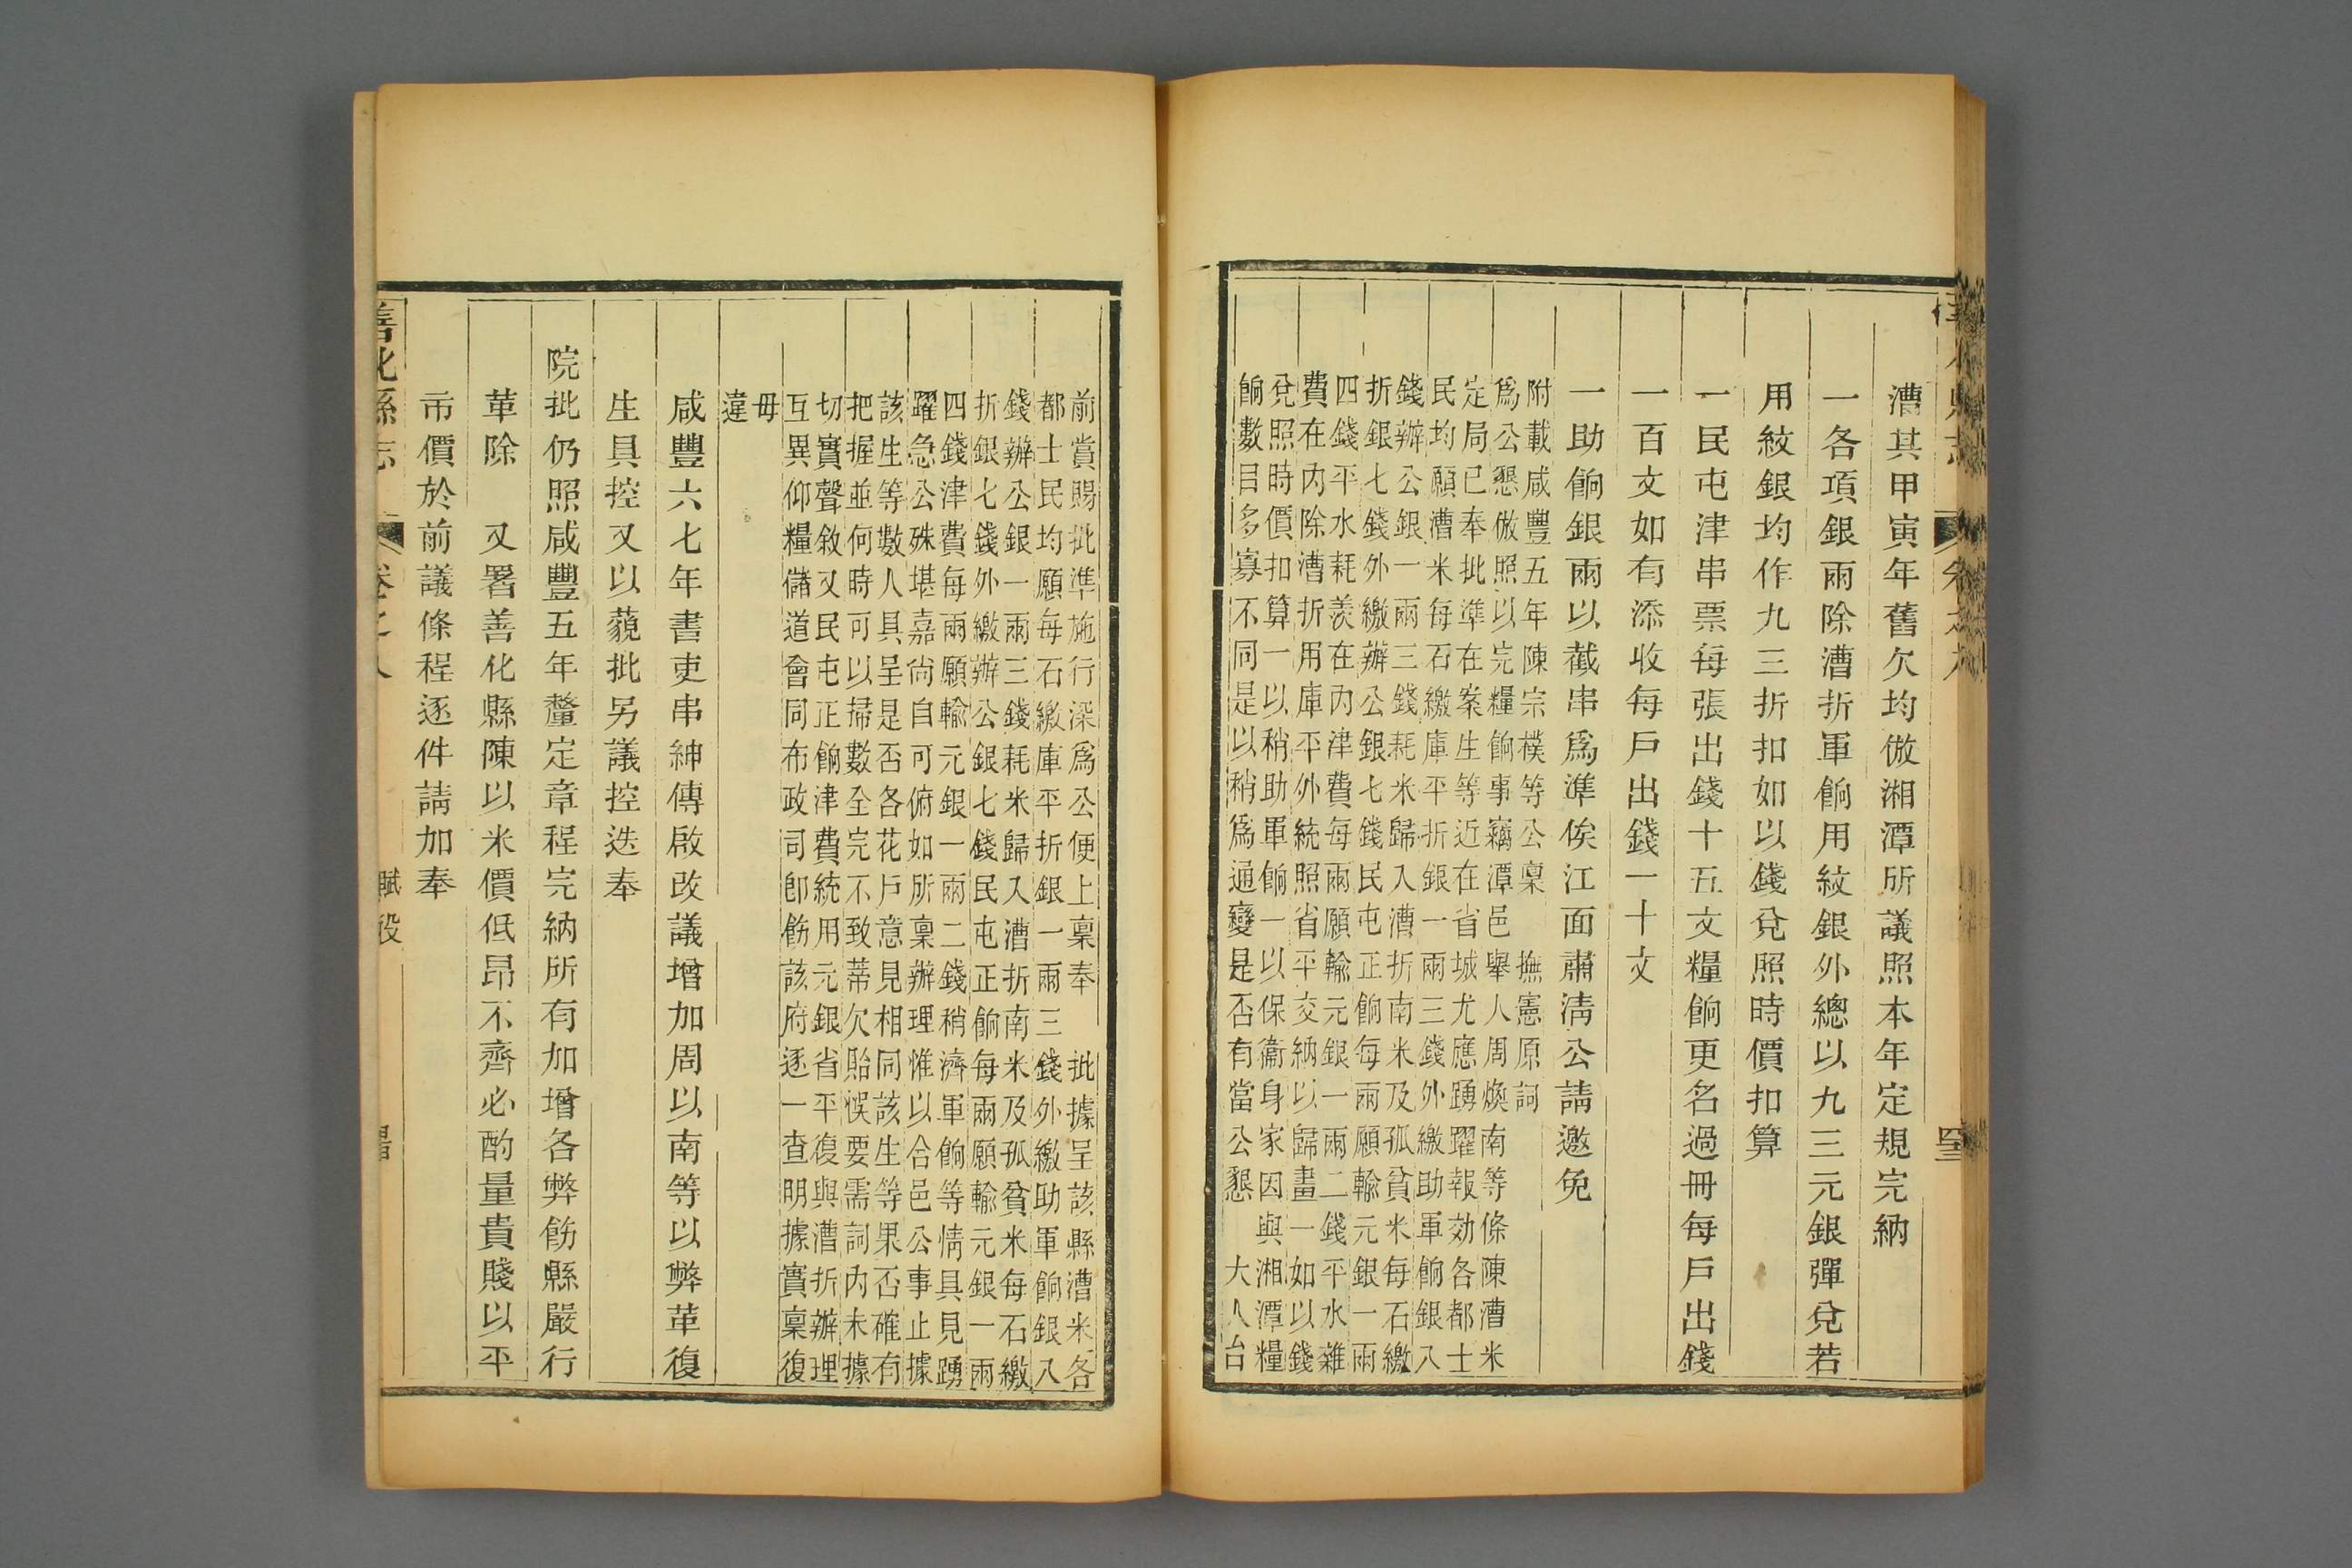 漕其甲寅年舊欠均倣湘潭所議照本年定規完納
一各項銀兩除漕折軍餉用紋銀外總以九三元銀彈兌若
用紋銀均作九三折扣如以錢兌照時價扣算
一民屯津串票每張出錢十五文糧餉更名過冊每戶出錢
一百文如有添收每戶出錢一十文
一助餉銀兩以截串爲準俟江面肅淸公請邀免
附載咸豐五年陳宗樸等公稟 撫憲原詞
爲公懇倣照以完糧餉事竊潭邑舉人周煥南等條陳漕米
定局已奉批準在案生等近在省城尤應踴躍報効各都士
民均願漕米每石繳庫平折銀一兩三錢外繳助軍餉銀入
錢辦公銀一兩三錢耗米歸入漕折南米及孤貧米每石繳
折銀七錢外繳辦公銀七錢民屯正餉每兩願輸元銀一兩
四錢平水耗羨在內津費每兩願輸元銀一兩二錢平水雜
費在內除漕折用庫平外統照省平交納以歸畫一如以錢
兌照時價扣算一以稍助軍餉一以保衞身家因與湘潭糧
餉數目多寡不同是以稍爲通變是否有當公懇 大人台
前賞賜批準施行深爲公便上稟奉 批據呈該縣漕米各
都士民均願每石繳庫平折銀一兩三錢外繳助軍餉銀入
錢辦公銀一兩三錢耗米歸入漕折南米及孤貧米每石繳
折銀七錢外繳辦公銀七錢民屯正餉每兩願輸元銀一兩
四錢津費每兩願輸元銀一兩二錢稍濟軍餉等情具見踴
躍急公殊堪嘉尙自可俯如所稟辦理惟以合邑公事止據
該生等數人具呈是否各花戶意見相同該生等果否確有
把握並何時可以掃數全完不致蒂欠貽悞要需詞內未據
切實聲敘又民屯正餉津費統用元銀省平復與漕折辦理
互異仰糧儲道會同布政司卽飭該府逐一查明據實稟復
毋
違
咸豐六七年書吏串紳傳啟改議增加周以南等以弊革復
生具控又以藐批另議控迭奉
院批仍照咸豐五年釐定章程完納所有加增各弊飭縣嚴行
革除 又署善化縣陳以米價低昂不齊必酌量貴賤以平
市價於前議條程逐件請加奉
善化縣志 卷之八 賦役